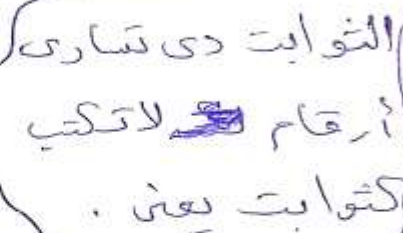 الثوابت دى تساوى
أرقام لا تكتب
كثوابت يعنى .